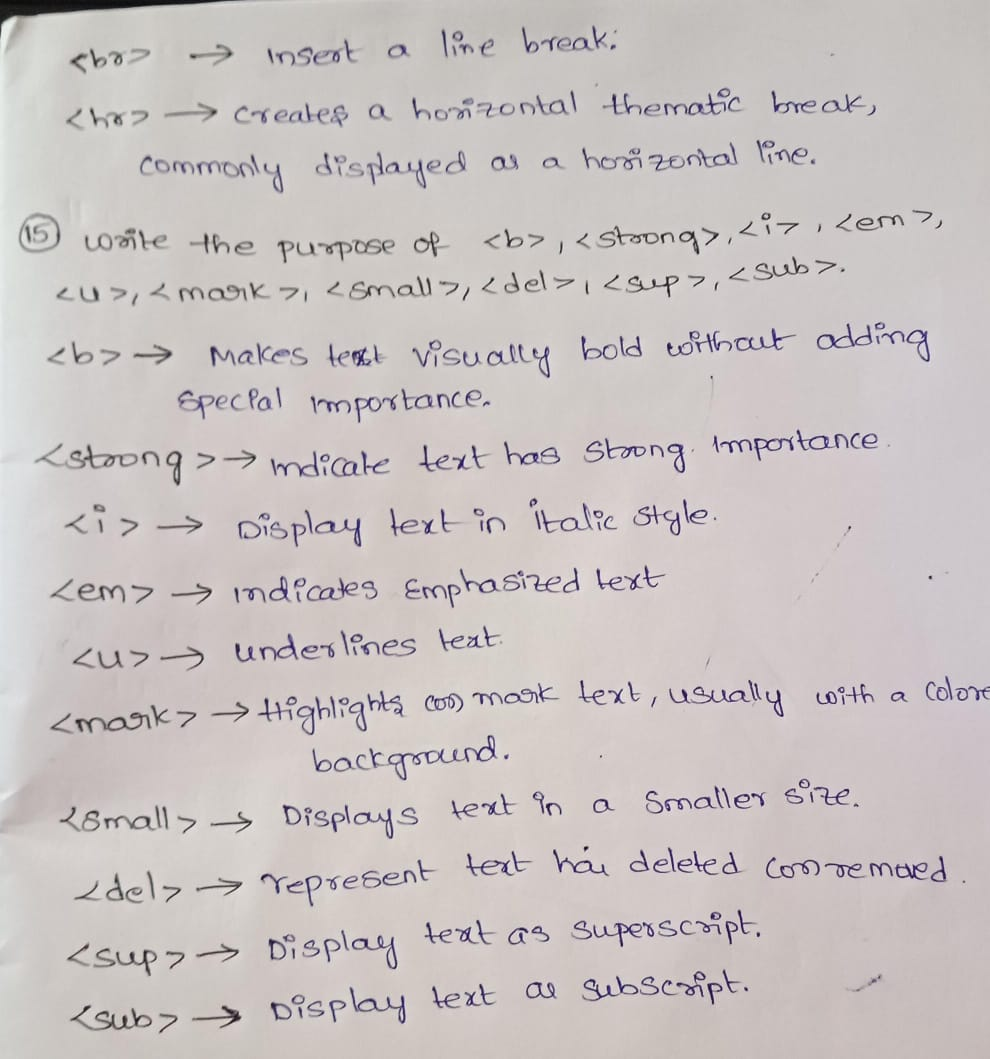 <br> → Insert a line break.
<hr> → Creates a horizontal thematic break,
commonly displayed as a horizontal line.
15 Write the purpose of <b>, <strong>, <i>, <em>,
<u>, <mark>, <small>, <del>, <sup>, <sub>.
<b> → Makes text visually bold without adding
special importance.
<strong> → indicate text has strong importance.
<i> → Display text in italic style.
<em> → indicates Emphasized text
<u> → underlines text.
<mark> → Highlights (or) mark text, usually with a colore
background.
<small> → Displays text in a smaller size.
<del> → represent text has deleted (or) removed.
<sup> → Display text as superscript.
<sub> → Display text as subscript.